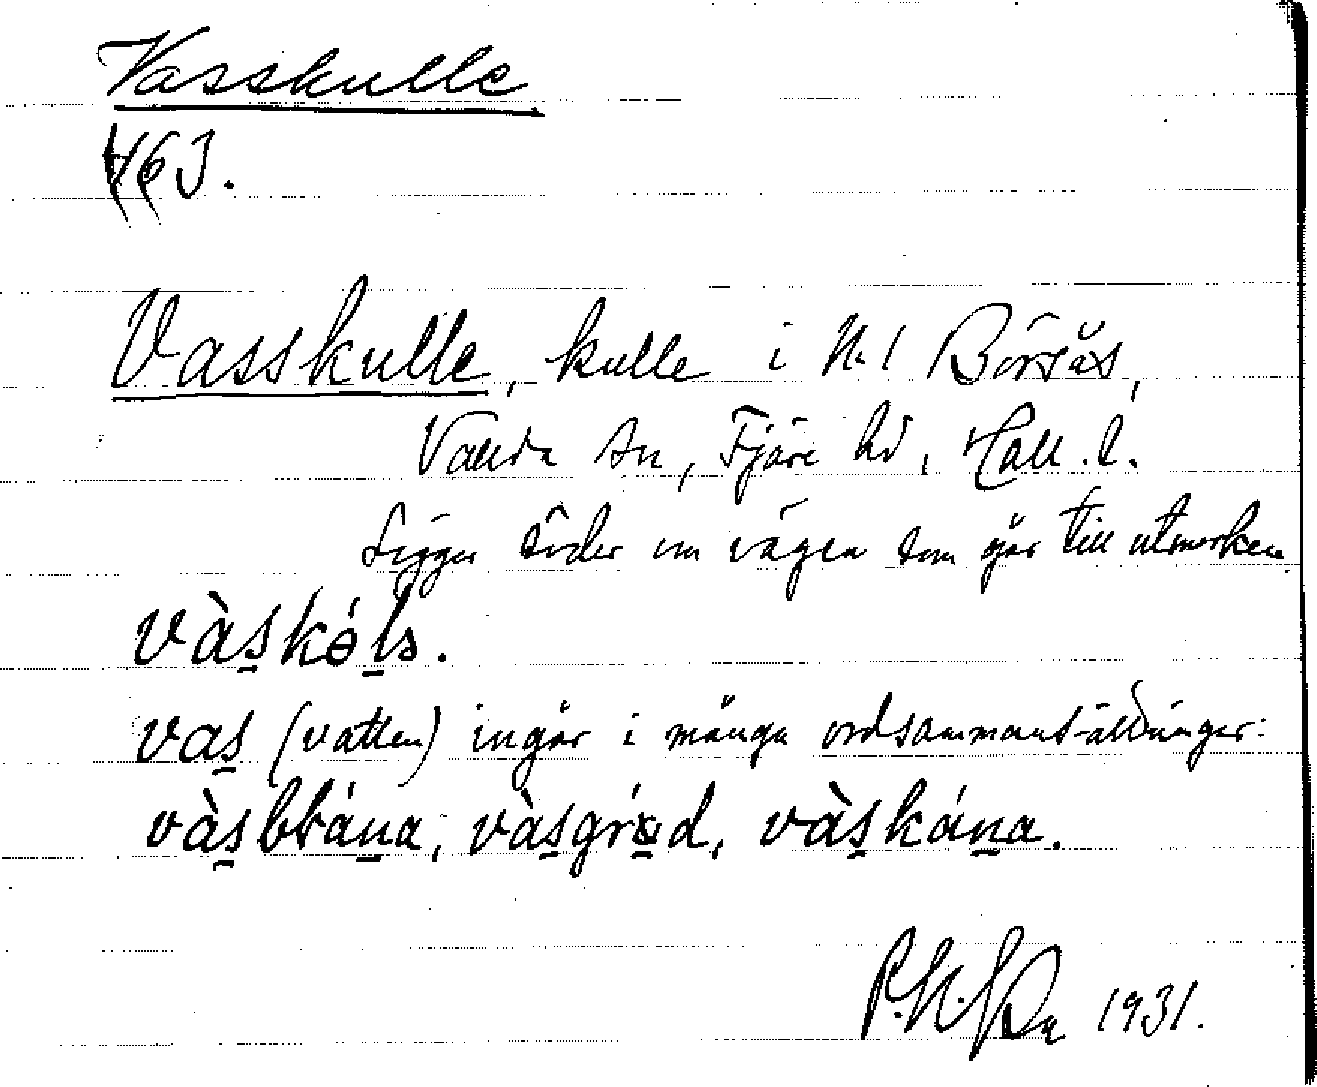 Vasskulle
Vasskulle, kulle i N. 1 Börsås,
Vallda sn, Fjäre hd, Hall. l.
Ligger söder om vägen som går till utmarken
vàs̱kól̠ə.
vas̱ (vatten) ingår i många ordsammanställningar:
vàs̱brán̠a, vàs̱grø̠d, vàs̱kán̠a.
1931.